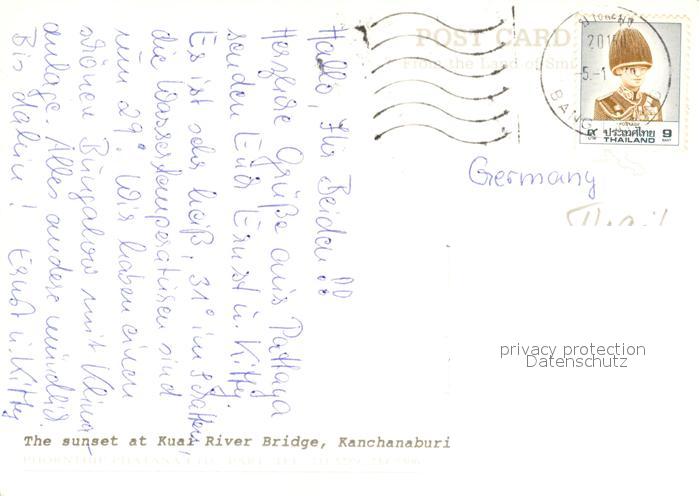 POST CARD
From the Land of Smi
BANG
5.-1
๙ ประเทศไทย 9
POSTAGE
BAHT
THAILAND
Germany
Hallo, Ihr Beiden!!
Herzliche Grüße aus Pattaya
senden Euch Ernst u. Kitty.
Es ist sehr heiß, 31° im Schatten,
die Wassertemperaturen sind
um 29°. Wir haben einen
schönen Bungalow mit Klima-
anlage. Alles andere mündlich.
Bis dahin! Ernst u. Kitty
privacy protection
Datenschutz
The sunset at Kuai River Bridge, Kanchanaburi